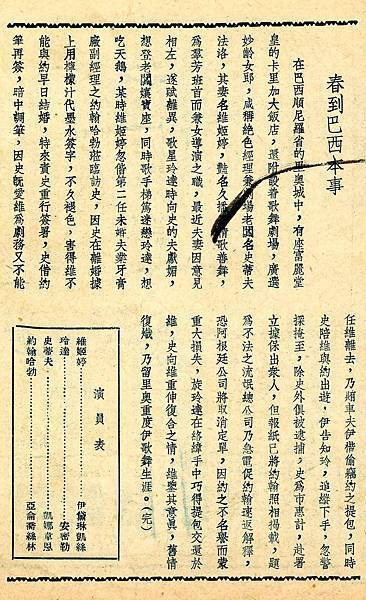 春到巴西本事
在巴西順尼羅省的里奧城中，有座富麗堂
皇的卡里加大飯店，還附設着歌舞劇場，廣選
妙齡女郎，咸稱絕色經理兼劇場老闆名史蒂夫
法洛，其妻名維姬婷，艷名久播，精歌善舞，
為羣芳班首而兼女導演之職，最近夫妻因意見
相左，遂賦離異，歌星玲達時向史的夫獻媚，
想登老闆孃寶座，同時歌手梯篤迷戀玲達，想
吃天鵝，某時維姬婷忽偕第二任未婚夫業牙膏
廠副經理之約翰哈勃蒞臨訪史，因史在離婚據
上用檸檬汁代墨水簽字，不久褪色，害得維不
能與約早日結婚，特來責史重行簽署，史借約
筆再簽，暗中調筆，因史既愛維為劇務又不能
任維離去，乃賄車夫伊偕偷竊約之提包，同時
史陪維與約出遊，伊告知玲，追蹤下手，忽警
探掩至，除史外俱被逮捕，史為市惠計，赴署
立據保出衆人，但報紙已將約翰照相揭載，題
為不法之流氓總公司乃急電促約翰速返解釋，
恐阿根廷公司將取消定單，因約之不名譽而蒙
重大損失，旋玲達在絡緯手中巧得提包交還於
維，史向維重伸復合之情，維鑒其意真，舊情
復熾，乃留里奧重度伊歌舞生涯。（完）
演員表
維姬婷…………伊黛琳凱絲
玲達…………安密勒
史蒂夫…………凱娜韋恩
約翰哈勃…………亞倫喬絲林